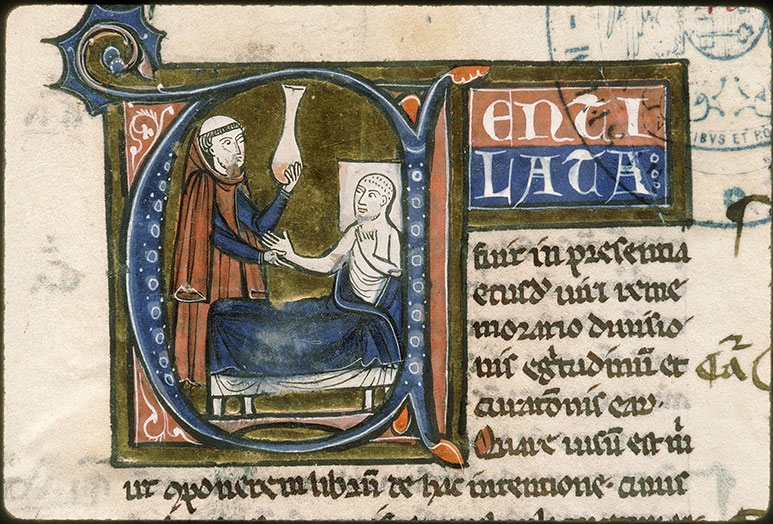 VENTI
LATA:
fuit in presentia
eiusd' uiri reme
moratio diuisio
nis egͥtudinū et
curatōnis eaꝝ.
Quare uisū est m̍
ut ꝯponerem librū de hac intentione. cuius
IBVS ET